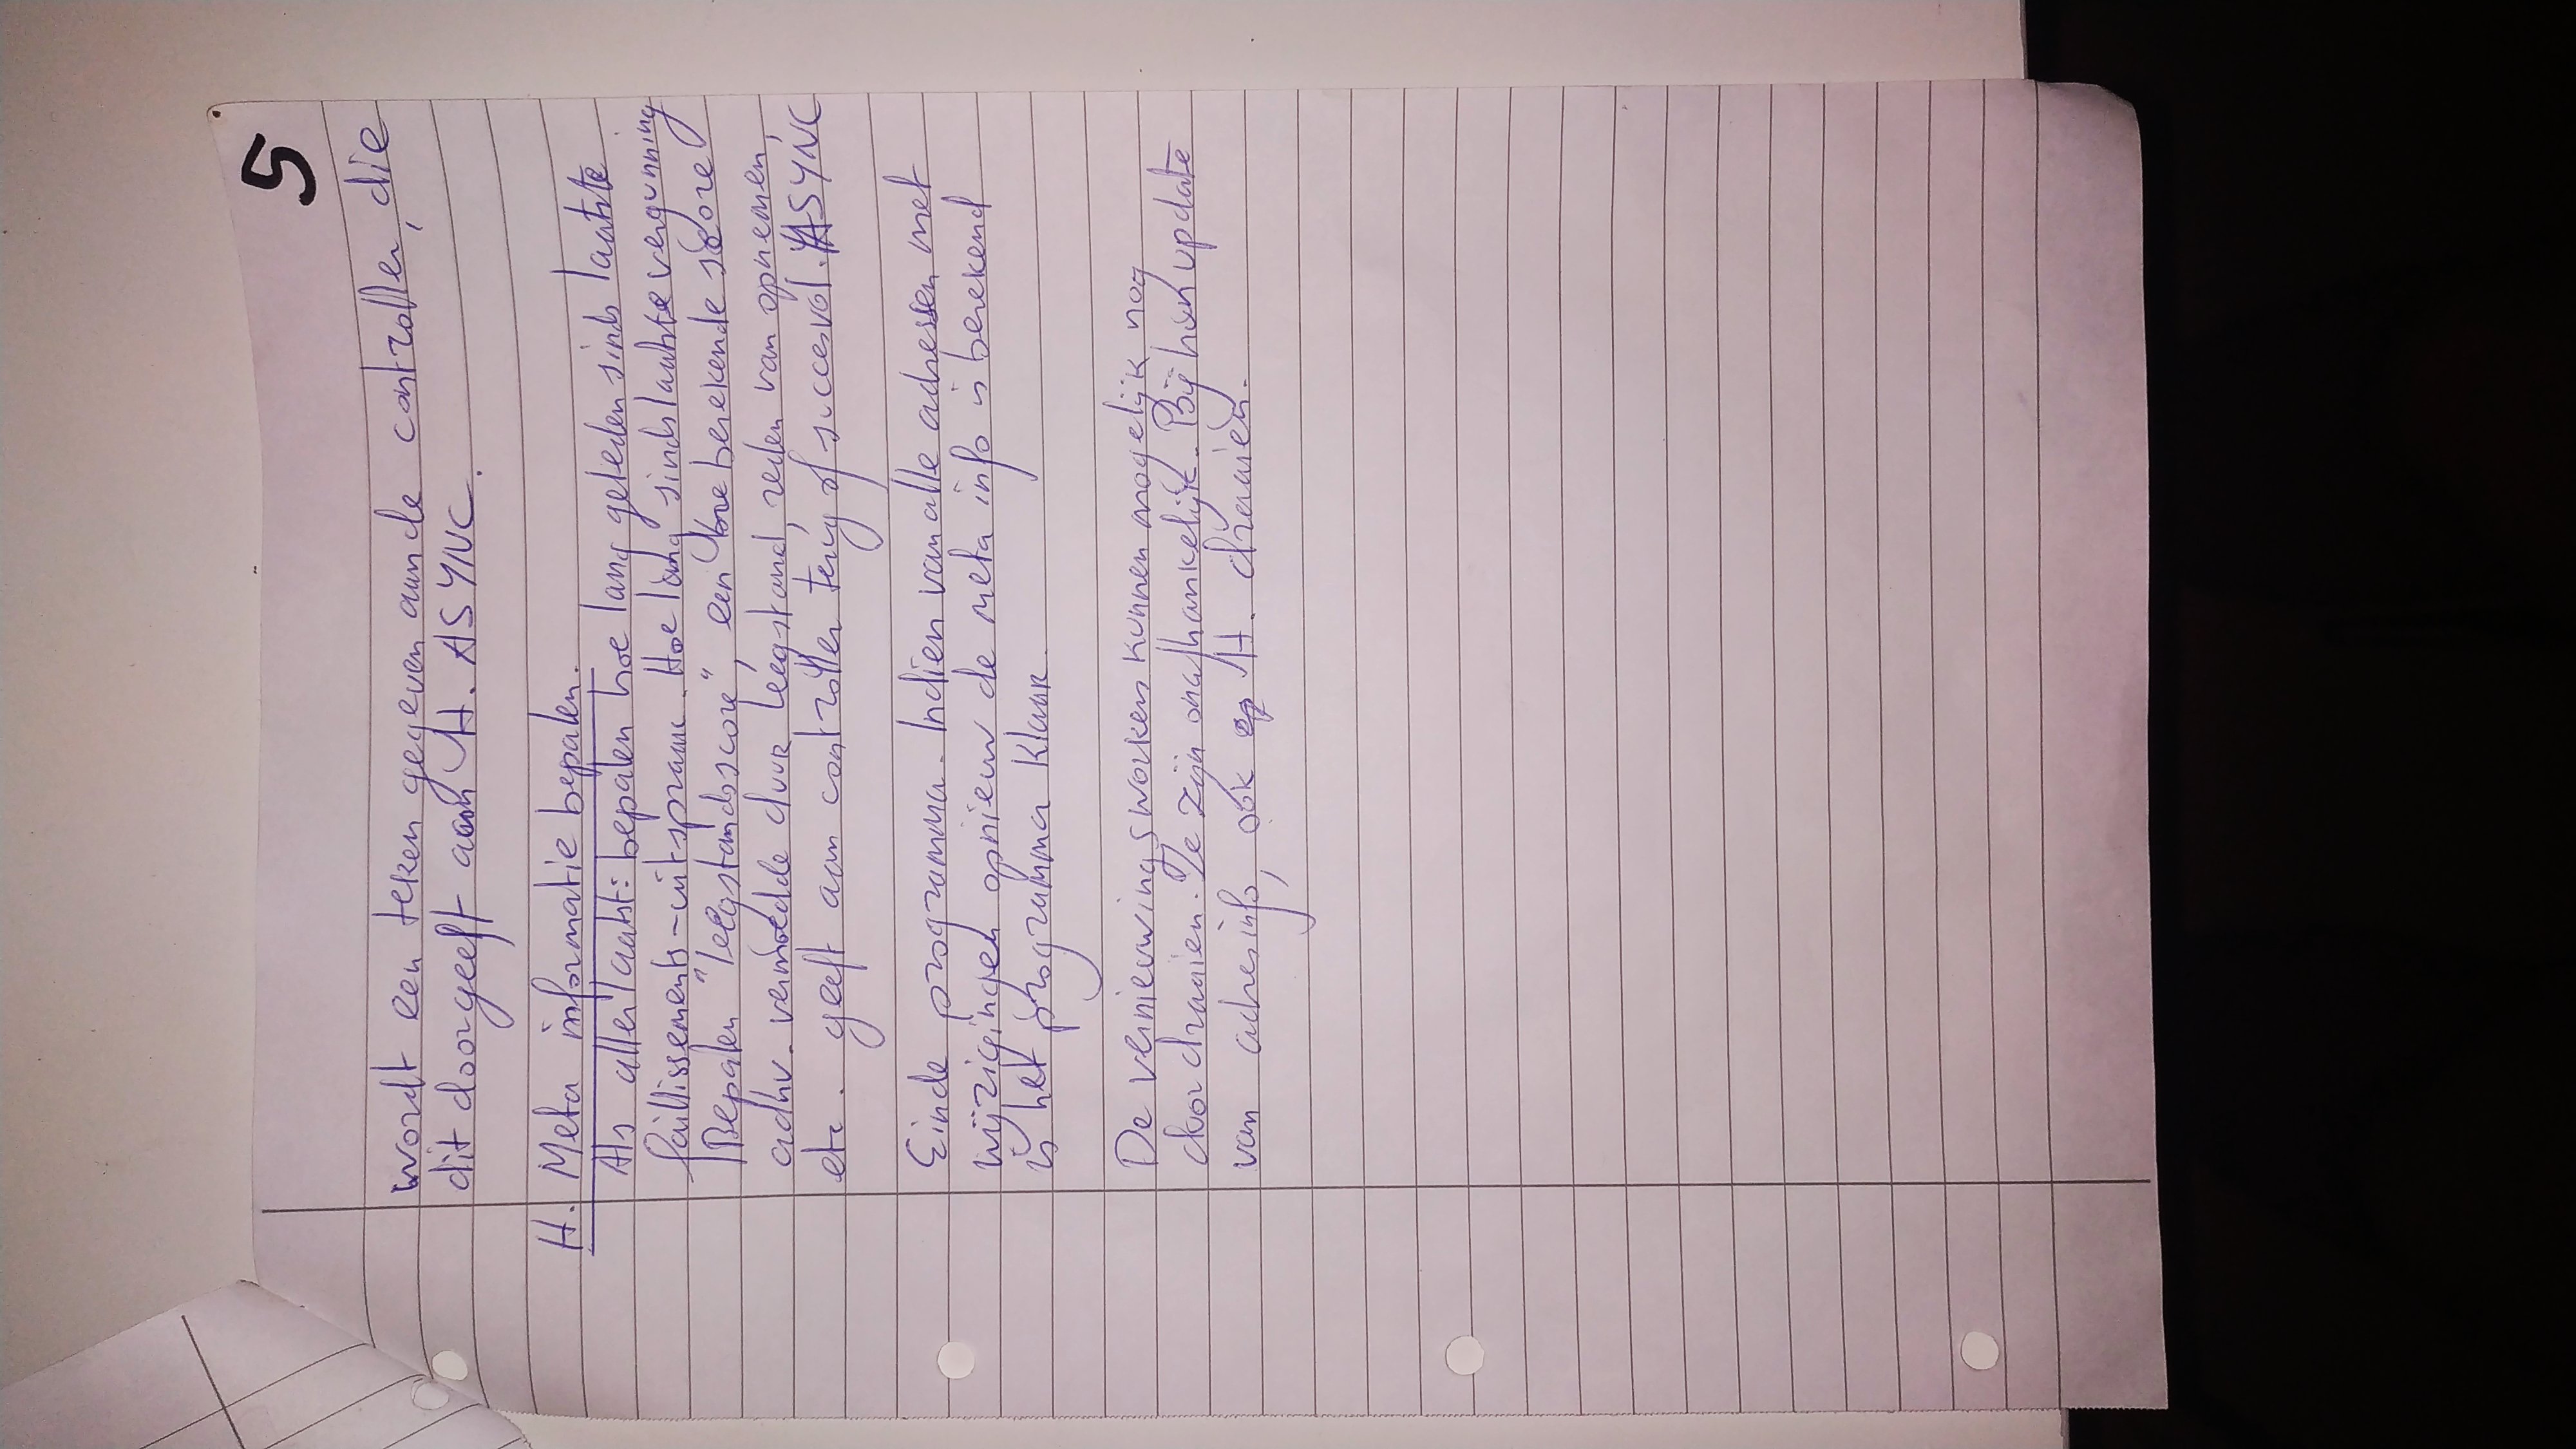 5
wordt een teken gegeven aan de controller, die
dit doorgeeft aan H. ASYNC.
H. Meta informatie bepalen.
Als allerlaatst: bepalen hoe lang geleden sinds laatste
faillissements-uitspraak. Hoe lang sinds laatste vergunning
Bepalen "leegstandsscore", een berekende score
adhv. vermoedde duur leegstand, reden van opnemen,
etc. geeft aan controller terug of succesvol. ASYNC
Einde programma. Indien van alle adressen met
wijzigingen opnieuw de meta info is berekend
is het programma klaar.
De vernieuwingsworkers kunnen mogelijk nog
doordraaien. Ze zijn onafhankelijk. Bij hun update
van adresinfo, ook H. draaien.